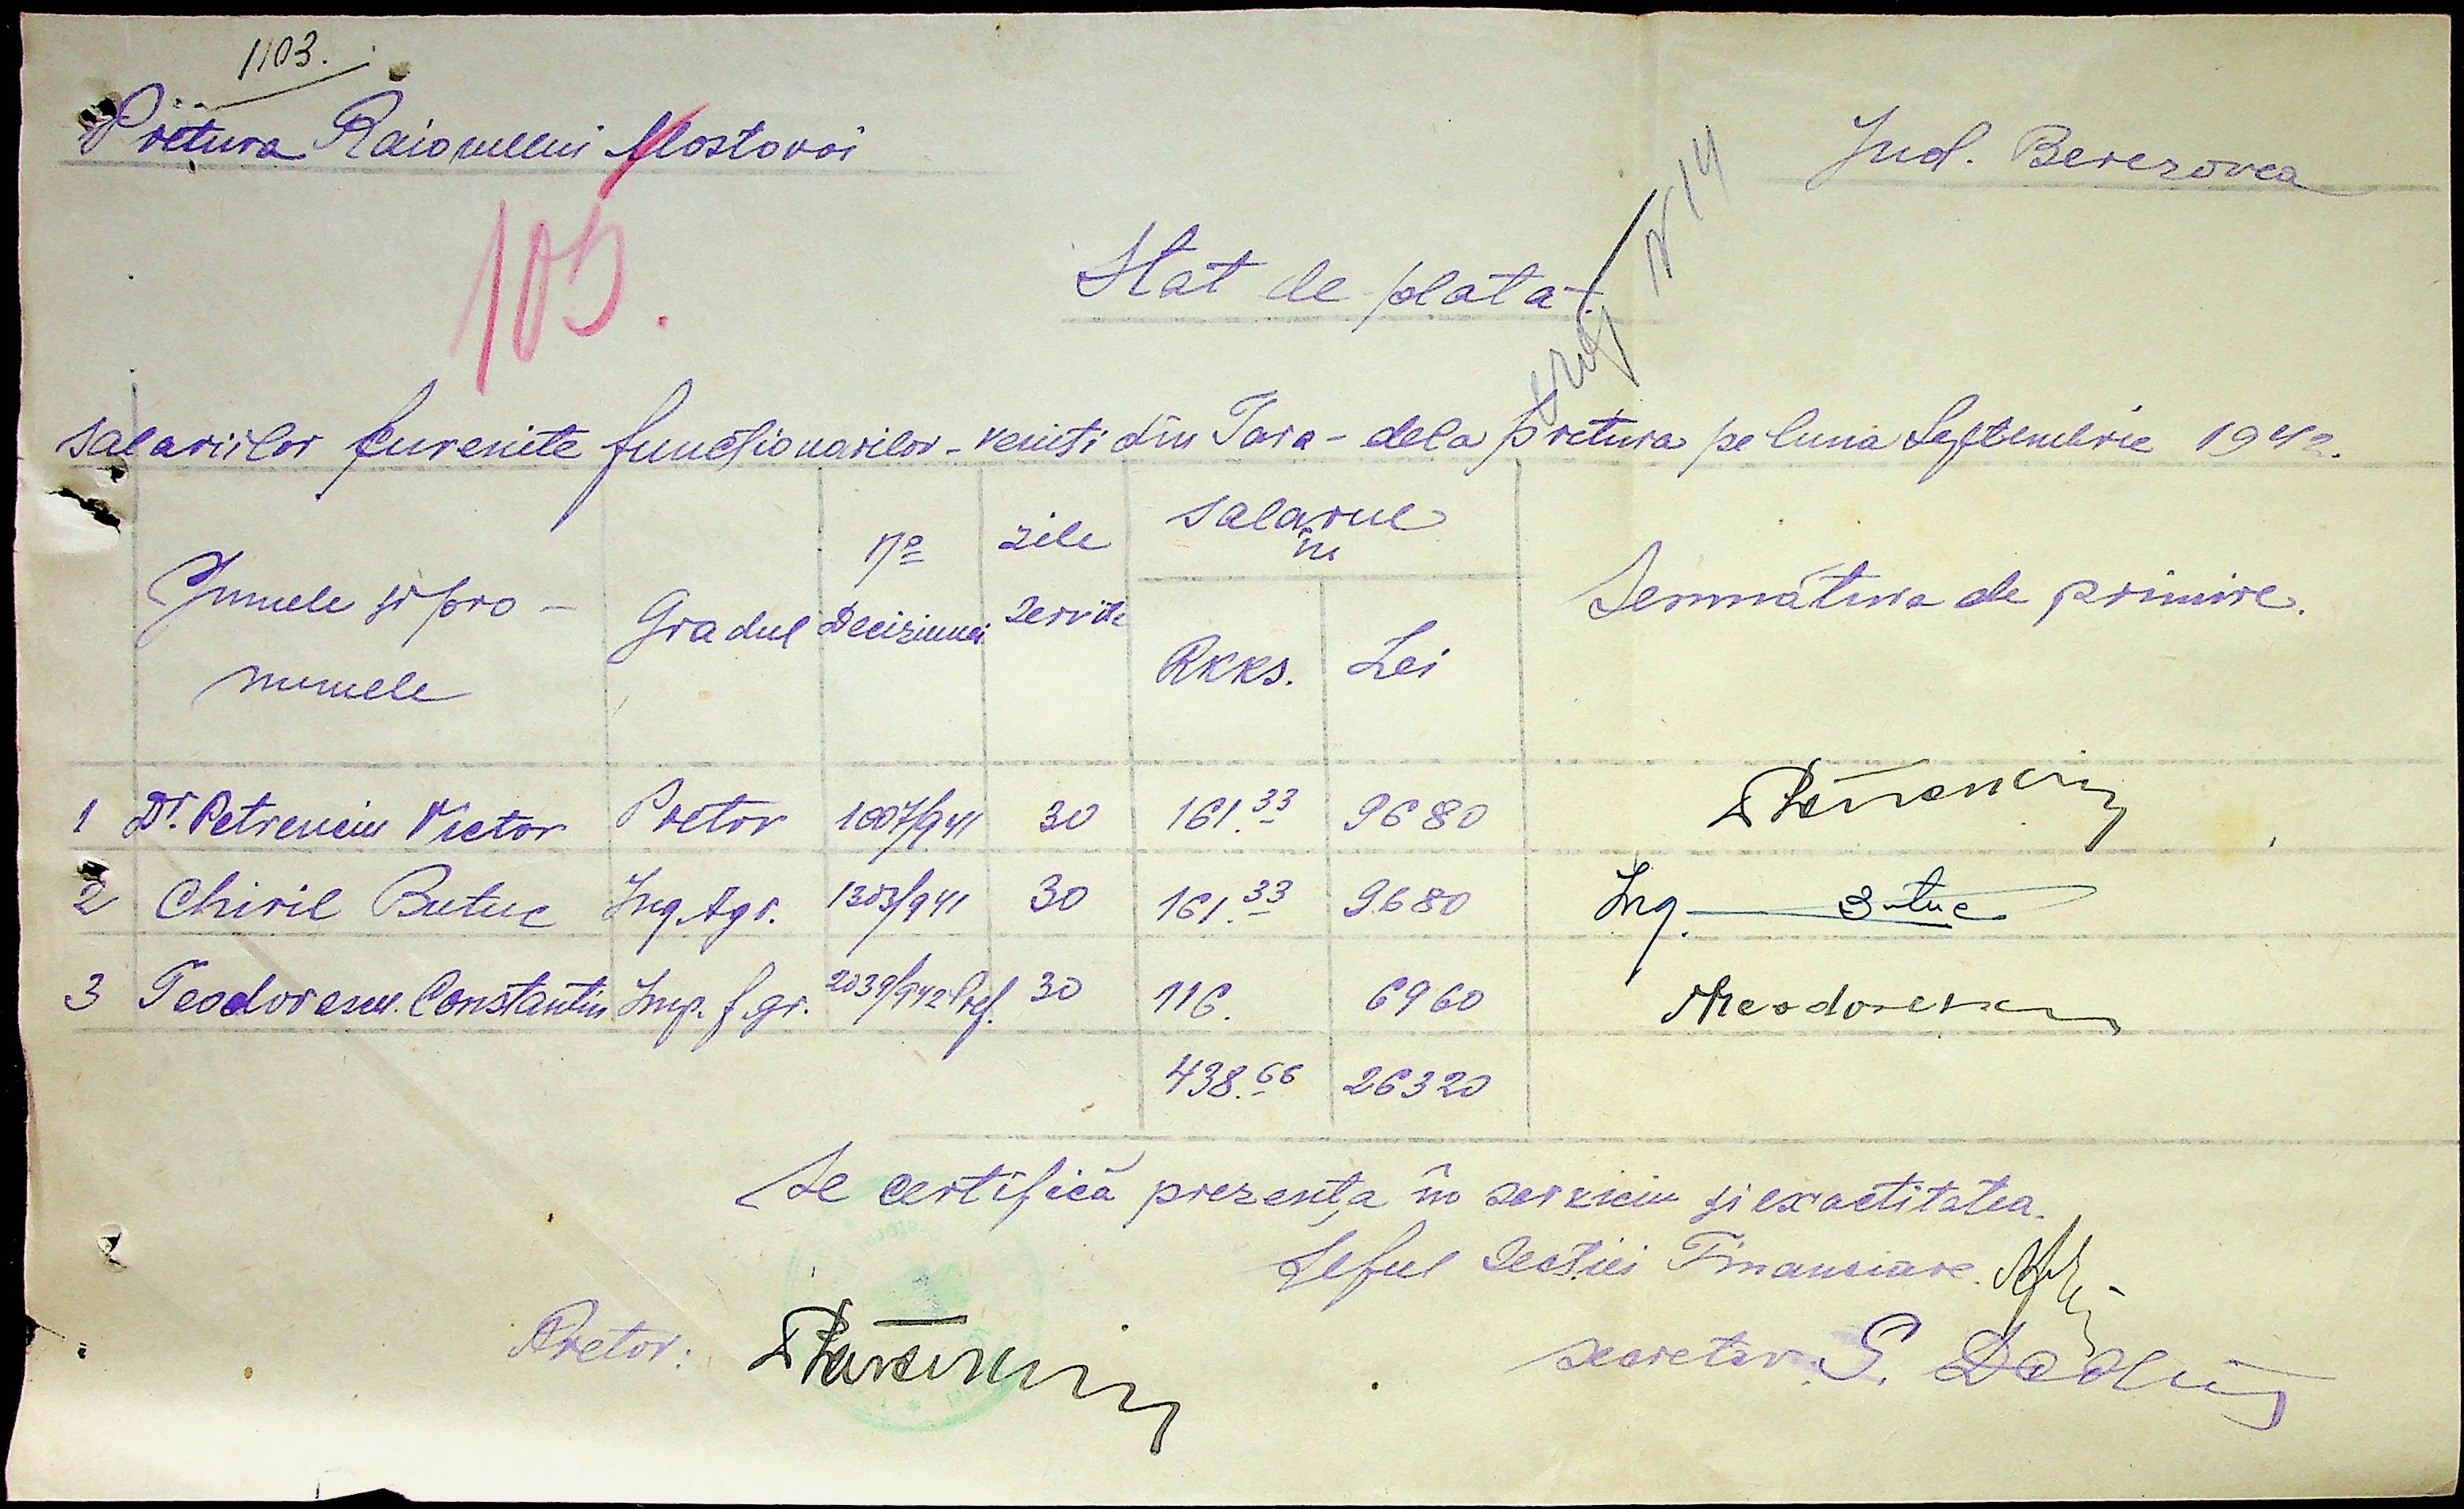 1103.
Pretura Raionului Mostovoi
Jud. Berezovca
105.
N 14
Stat de plata
salariilor cuvenite funcționarilor - veniti din Tara - dela pretura pe luna Septembrie 1942.
Numele și pro-
numele
Gradul
No Deciziunei
zile servite
Salarul în
Rkks. Lei
Semnătura de primire.
1 Dr. Petrenciu Victor Pretor 1007/941 30 161.33 9680
2 Chiril Butuc Ing. Agr. 1303/941 30 161.33 9680 Ing. Butuc
3 Teodorescu Constantin Imp. f. gr. 2039/942 Pref. 30 116. 6960 Theodorescu
438.66 26320
Se certifică prezența în serviciu și exactitatea.
Șeful Secției Financiare.
Pretor:
secretar: S.